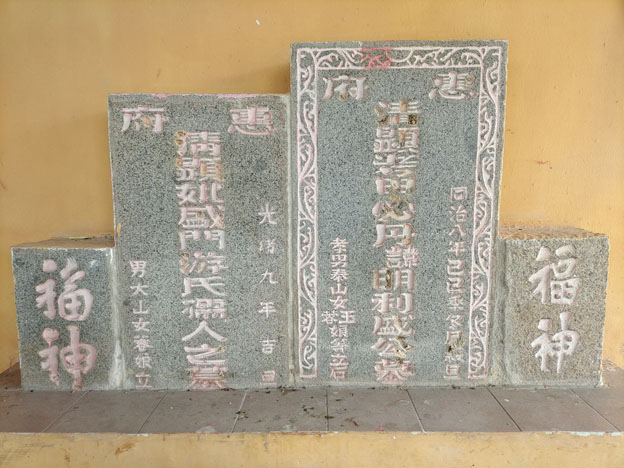 福神
惠府
同治八年己巳季冬月吉旦
清顯考甲必丹諱明利盛公墓
孝男泰山女玉等立石
惠府
光緒九年吉旦
清顯妣盛門游氏孺人之墓
男大山女春娘立
福神